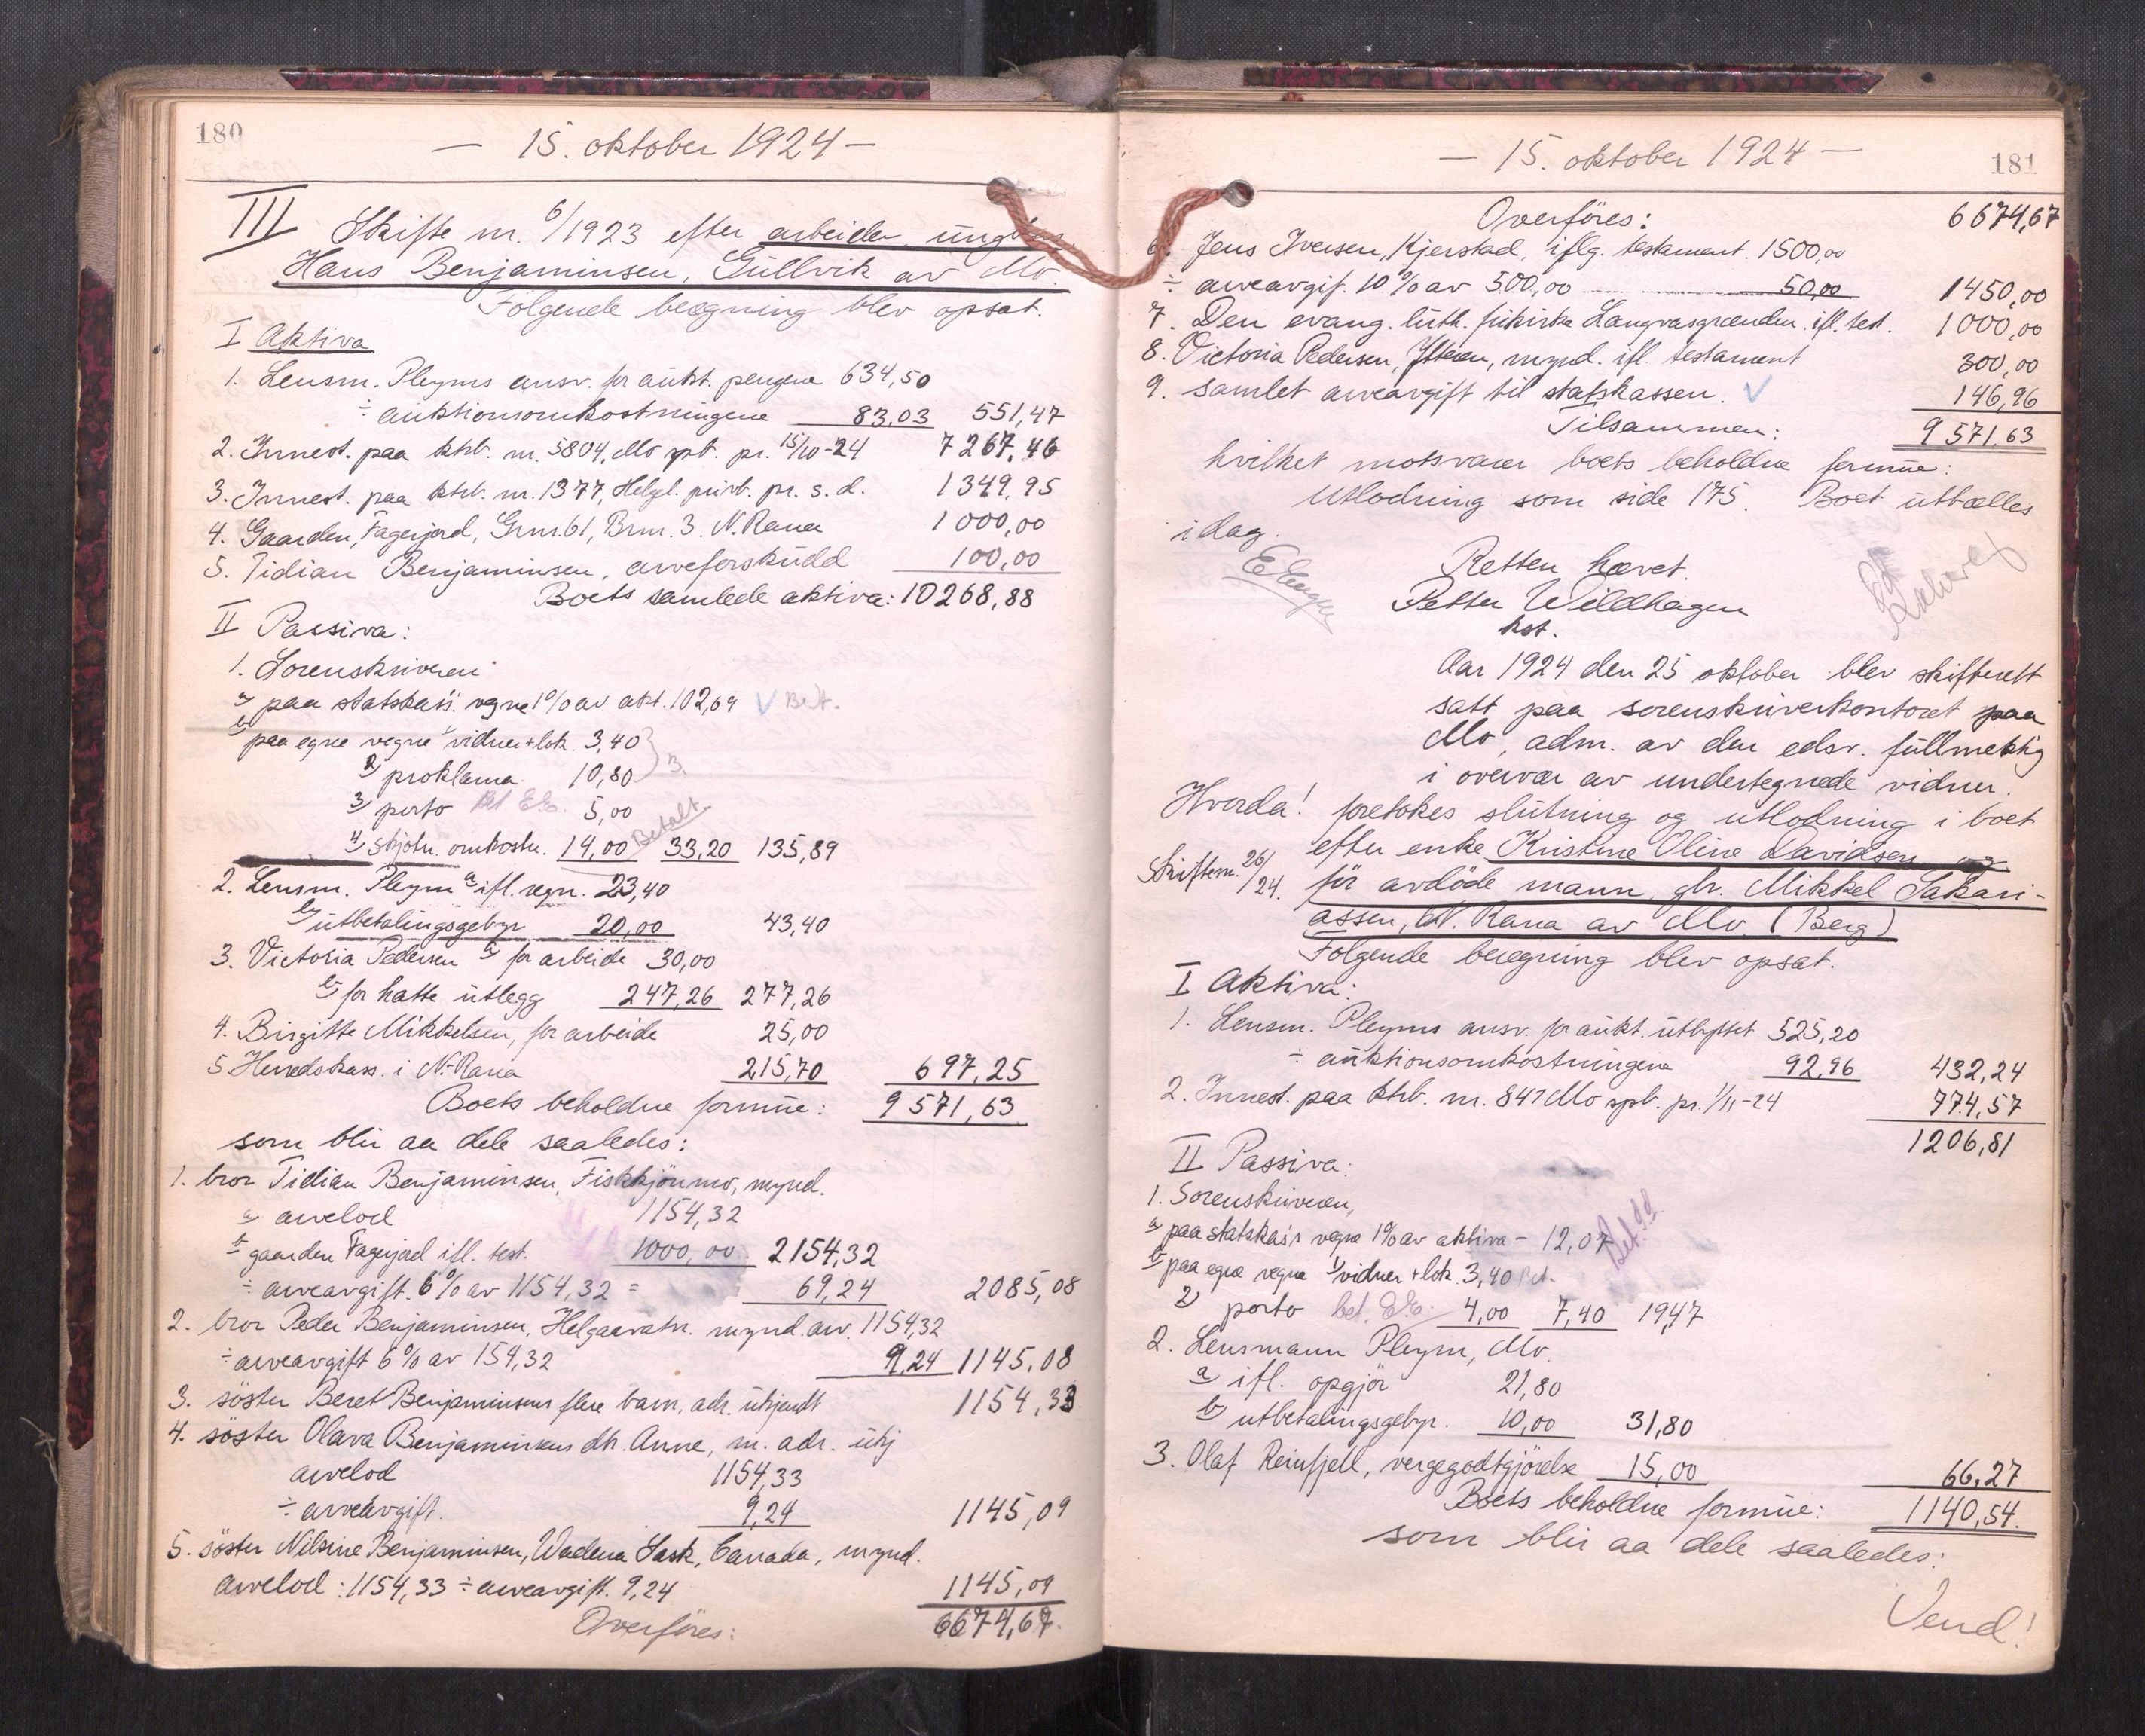 180
— 15. oktober 1924 —
III Skifte nr. 6/1923 efter arbeider, ungkar
Hans Benjaminsen, Gullvik av Mo.
Følgende beregning blev opsat.
I Aktiva
1. Lensm. Pleyms ansv. for aukt. pengene 634,50
÷ auktionsomkostningene 83,03 551,47
2. Innest. paa ktrb. nr. 5804, Mo spb. pr. 15/10-24 7267,46
3. Innest. paa ktrb. nr. 1377, Helgl. privb. pr. s. d. 1349,95
4. Gaarden, Fagerjord, Grnr. 61, Brnr. 3. N. Rana 1000,00
5. Tidian Benjaminsen, arveforskudd 100,00
Boets samlede aktiva: 10268,88
II Passiva:
1. Sorenskriveren
a) paa statskass. vegne 1% av akt. 102,69 Bet.
b) paa egne vegne 1) vidner + lok. 3,40
2) proklama 10,80 3.
3) porto Bet. E.E. 5,00
4) skjøtn. omkostn. 14,00 Betalt 33,20 135,89
2. Lensm. Pleym a) ifl. regn. 23,40
b) utbetalingsgebyr 20,00 43,40
3. Victoria Pedersen a) for arbeide 30,00
b) for hatte utlegg 247,26 277,26
4. Birgitte Mikkelsen, for arbeide 25,00
5. Herredskass. i N.-Rana 215,70 697,25
Boets beholdne formue: 9571,63
som blir aa dele saaledes:
1. bror Tidian Benjaminsen, Fiskkjønmo, mynd.
a) arvelod 1154,32
b) gaarden Fagerjord ifl. test. 1000,00 2154,32
÷ arveavgift. 6% av 1154,32 = 69,24 2085,08
2. bror Peder Benjaminsen, mynd. arv. 1154,32
÷ arveavgift 6% av 154,32 9,24 1145,08
3. søster Beret Benjaminsens flere barn, adr. ukjendt 1154,33
4. søster Olava Benjaminsens dtr. Anne, m. adr. ukj
arvelod 1154,33
÷ arveavgift. 9,24 1145,09
5. søster Nilsine Benjaminsen, Wadena Sask, Canada, mynd.
arvelod: 1154,33 ÷ arveavgift. 9,24 1145,09
Overføres: 6674,67
— 15. oktober 1924 —
181
Overføres: 6674,67
6. Jens Iversen, Kjerstad, iflg. testament. 1500,00
÷ arveavgif. 10% av 500,00 50,00 1450,00
7. Den evang. luth. frikirke Langvasgrenden. ifl. test. 1000,00
8. Victoria Pedersen, Ytteren, mynd. ifl. testament 300,00
9. samlet arveavgift til statskassen. 146,96
Tilsammen: 9571,63
hvilket motsvarer boets beholdne formue:
Utlodning som side 175. Boet utkvælles
idag.
Retten hævet.
Petter Wildhagen
kst.
Aar 1924 den 25 oktober blev skifterett
satt paa sorenskriverkontoret paa
Mo, adm. av den edsv. fullmektig
i overvær av undertegnede vidner.
Hvorda! foretokes slutning og utlodning i boet
Skiftenr. 26/24. efter enke Kristine Oline Davidsen og
før avdøde mann, gbr. Mikkel Sakari-
assen, N. Rana av Mo. (Berg)
Følgende beregning blev opsat.
I Aktiva:
1. Lensm. Pleyms ansv. for aukt. utbyttet 525,20
÷ auktionsomkostningene 92,96 432,24
2. Innest. paa ktrb. nr. 847 Mo spb. pr. 1/11-24 774,57
1206,81
II Passiva:
1. Sorenskriveren,
a) paa statskass vegne 1% av aktiva – 12,07
b) paa egne vegne 1) vidner + lok. 3,40 Bet.
2) porto bet. E.E. 4,00 7,40 19,47
2. Lensmann Pleym, Mo.
a) ifl. opgjør 21,80
b) utbetalingsgebyr. 10,00 31,80
3. Olaf Reinfjell, vergegodtgjørelse 15,00 66,27
Boets beholdne formue: 1140,54.
som blir aa dele saaledes:
Vend!